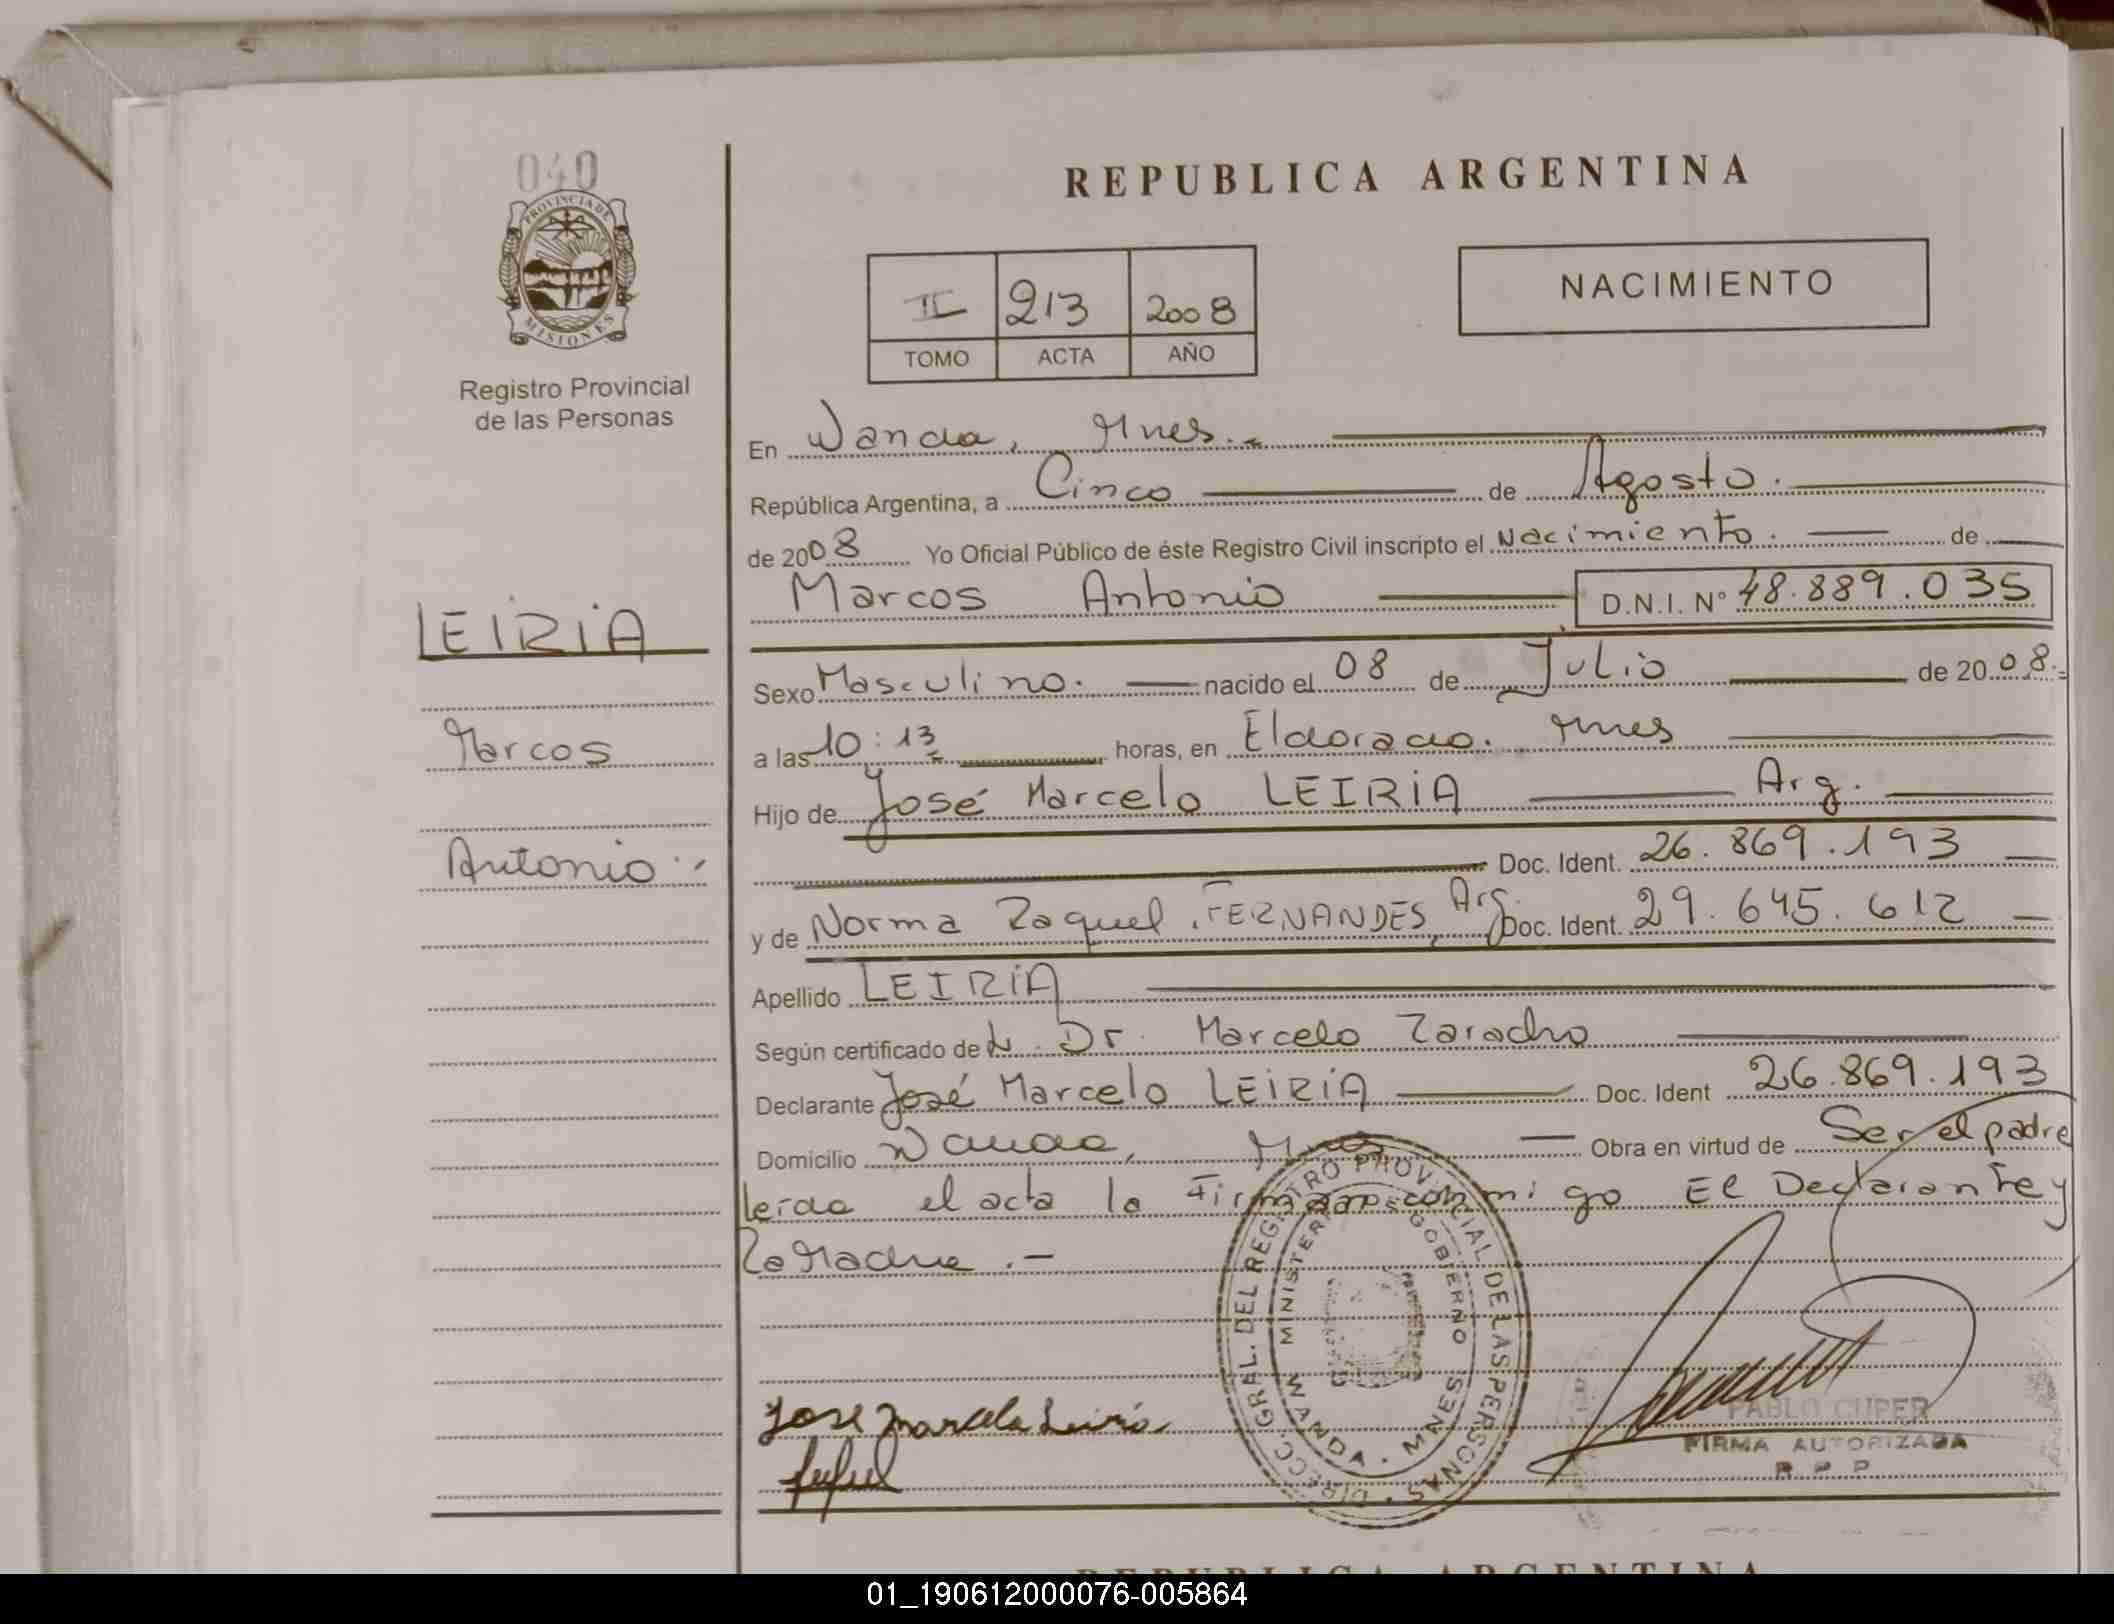 040
PROVINCIA DE
MISIONES
Registro Provincial
de las Personas
LEIRIA
Marcos
Antonio
REPUBLICA ARGENTINA
II 213 2008
TOMO ACTA AÑO
NACIMIENTO
En Wanda, Mnes.-
República Argentina, a Cinco de Agosto.
de 2008 Yo Oficial Público de éste Registro Civil inscripto el Nacimiento. de
Marcos Antonio D.N.I. N° 48.889.035
Sexo Masculino. nacido el 08 de Julio de 2008.=
a las 10:13 horas, en Eldorado. Mnes
Hijo de José Marcelo LEIRIA Arg.
Doc. Ident. 26.869.193
y de Norma Raquel FERNANDES, Arg. Doc. Ident. 29.645.612
Apellido LEIRIA
Según certificado de Dr. Marcelo Zaracho
Declarante José Marcelo LEIRIA Doc. Ident 26.869.193
Domicilio Wanda, Mnes Obra en virtud de Ser el padre
leída el acta la Firman conmigo El Declarante y
La Madre.-
DIRECC. GRAL. DEL REGISTRO PROVINCIAL DE LAS PERSONAS
MINISTERIO DE GOBIERNO
WANDA - MNES
Jose marcelo Leiria
PABLO CUPER
FIRMA AUTORIZADA
R P P
REPUBLICA ARGENTINA
01_190612000076-005864